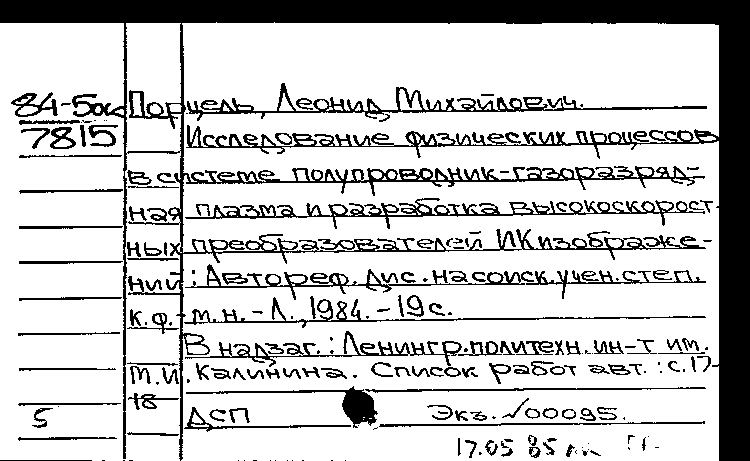 84-5ок Порцель, Леонид Михайлович.
7815 Исследование физических процессов
в системе полупроводник-газоразряд-
ная плазма и разработка высокоскорост-
ных преобразователей ИК изображе-
ний : Автореф. дис. на соиск. учен. степ.
к.ф.-м.н. - Л., 1984. - 19 с.
В надзаг. : Ленингр. политехн. ин-т им.
М.И. Калинина. Список работ авт. : с. 17-
18
5 ДСП Экз. √00095.
17.05 85